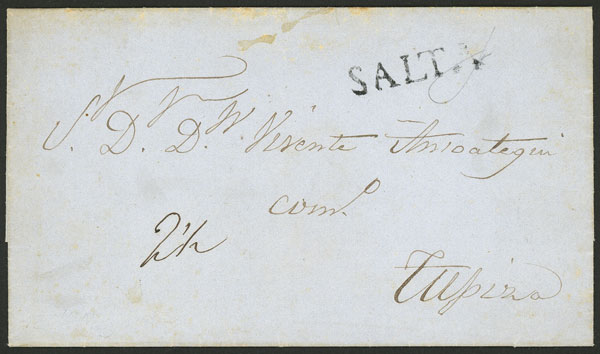 SALTA
S.r D.n D.n Vicente Anzoategui
com.o
2 1/2
Tupiza